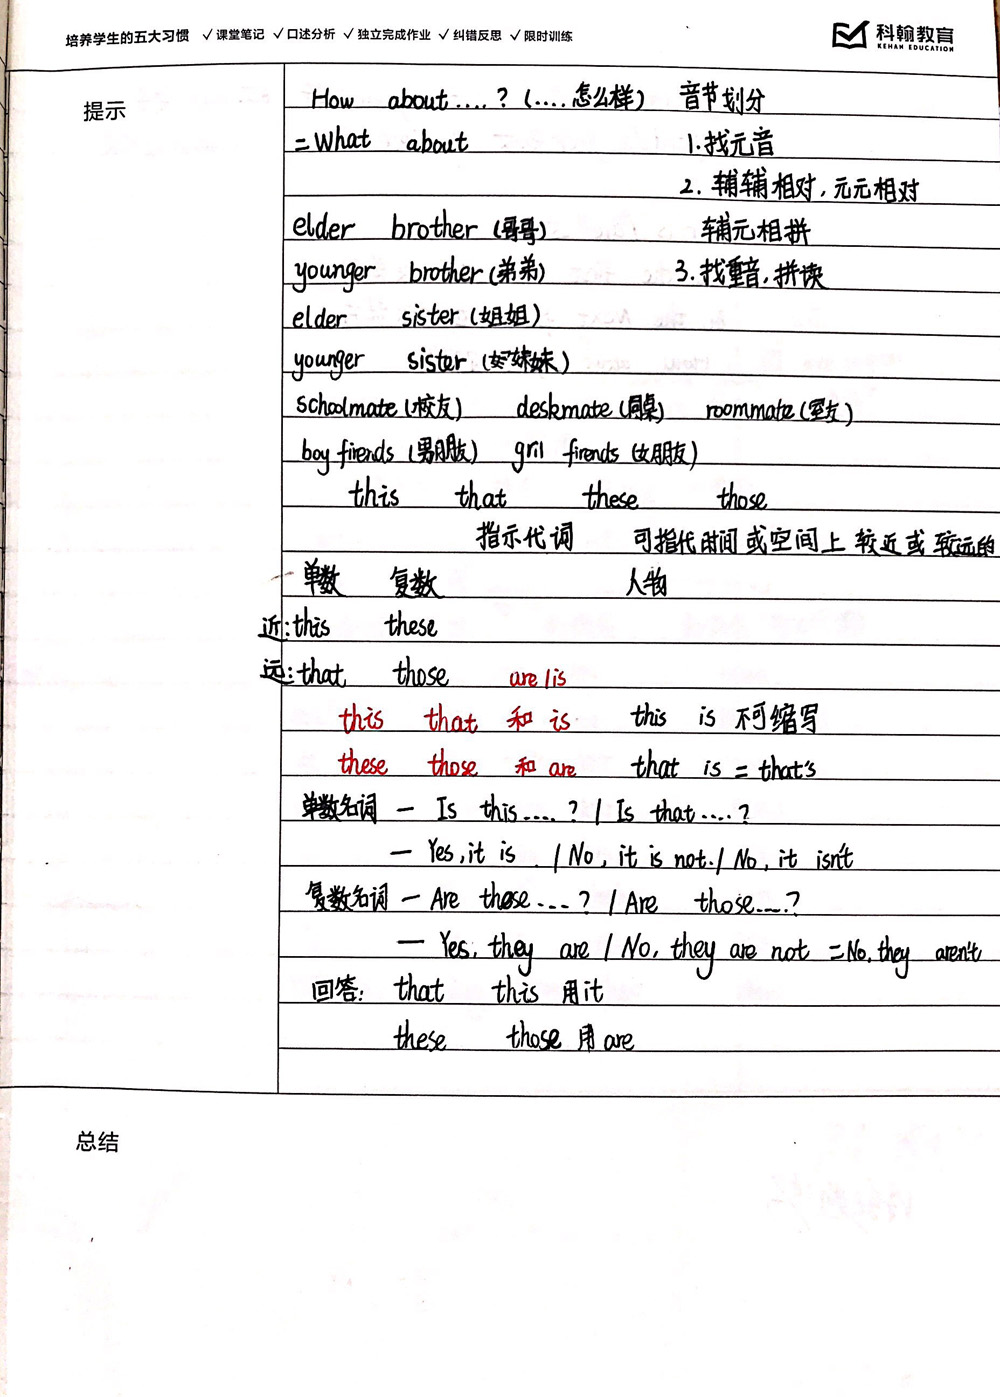 培养学生的五大习惯 ✓课堂笔记 ✓口述分析 ✓独立完成作业 ✓纠错反思 ✓限时训练
科翰教育
KEHAN EDUCATION
提示
How about ....? (....怎么样) 音节划分
=What about 1.找元音
2. 辅辅相对,元元相对
elder brother (哥哥) 辅元相拼
younger brother (弟弟) 3.找重音,拼读
elder sister (姐姐)
younger sister (妹妹)
schoolmate (校友) deskmate (同桌) roommate (室友)
boy firends (男朋友) gril firends (女朋友)
this that these those
指示代词 可指代时间或空间上较近或较远的
单数 复数 人物
近:this these
远:that those are/is
this that 和 is this is 不可缩写
these those 和 are that is = that's
单数名词 — Is this....? / Is that....?
— Yes,it is. / No, it is not. / No, it isn't
复数名词 — Are these....? / Are those....?
— Yes, they are / No, they are not =No, they aren't
回答: that this 用it
these those 用 are
总结